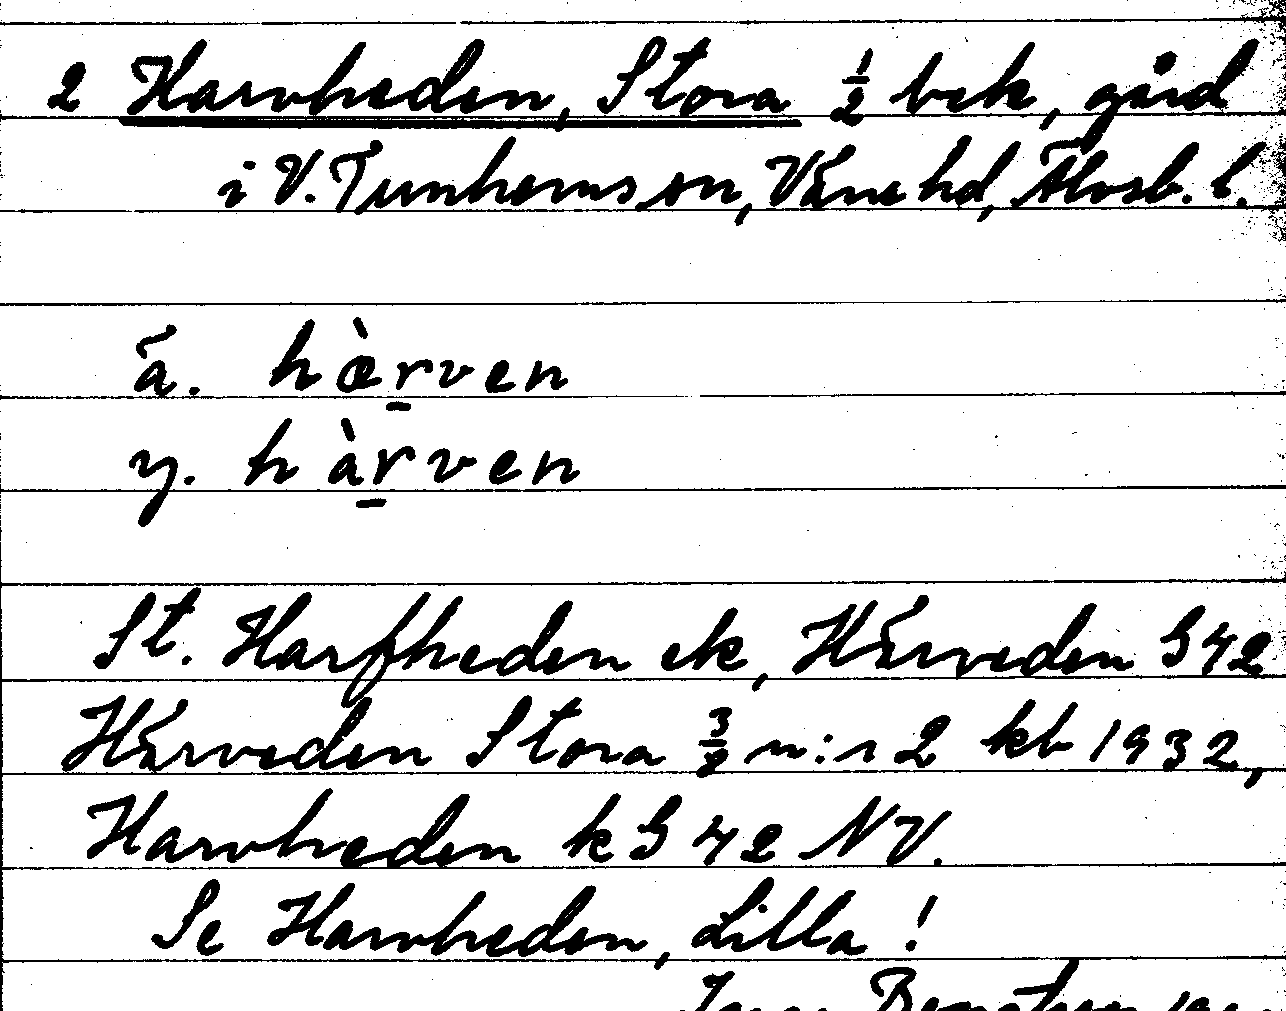 2 Harvheden, Stora ½ bek, gård
i V. Tunhems sn, Väne hd, Älvsb. l.
ä. hæ̀rven
y. hàrven
St. Harfheden ek, Härveden G42
Härveden Stora 3/8 n:r 2 kb 1932,
Harvheden k G 42 NV.
Se Harvheden, Lilla!